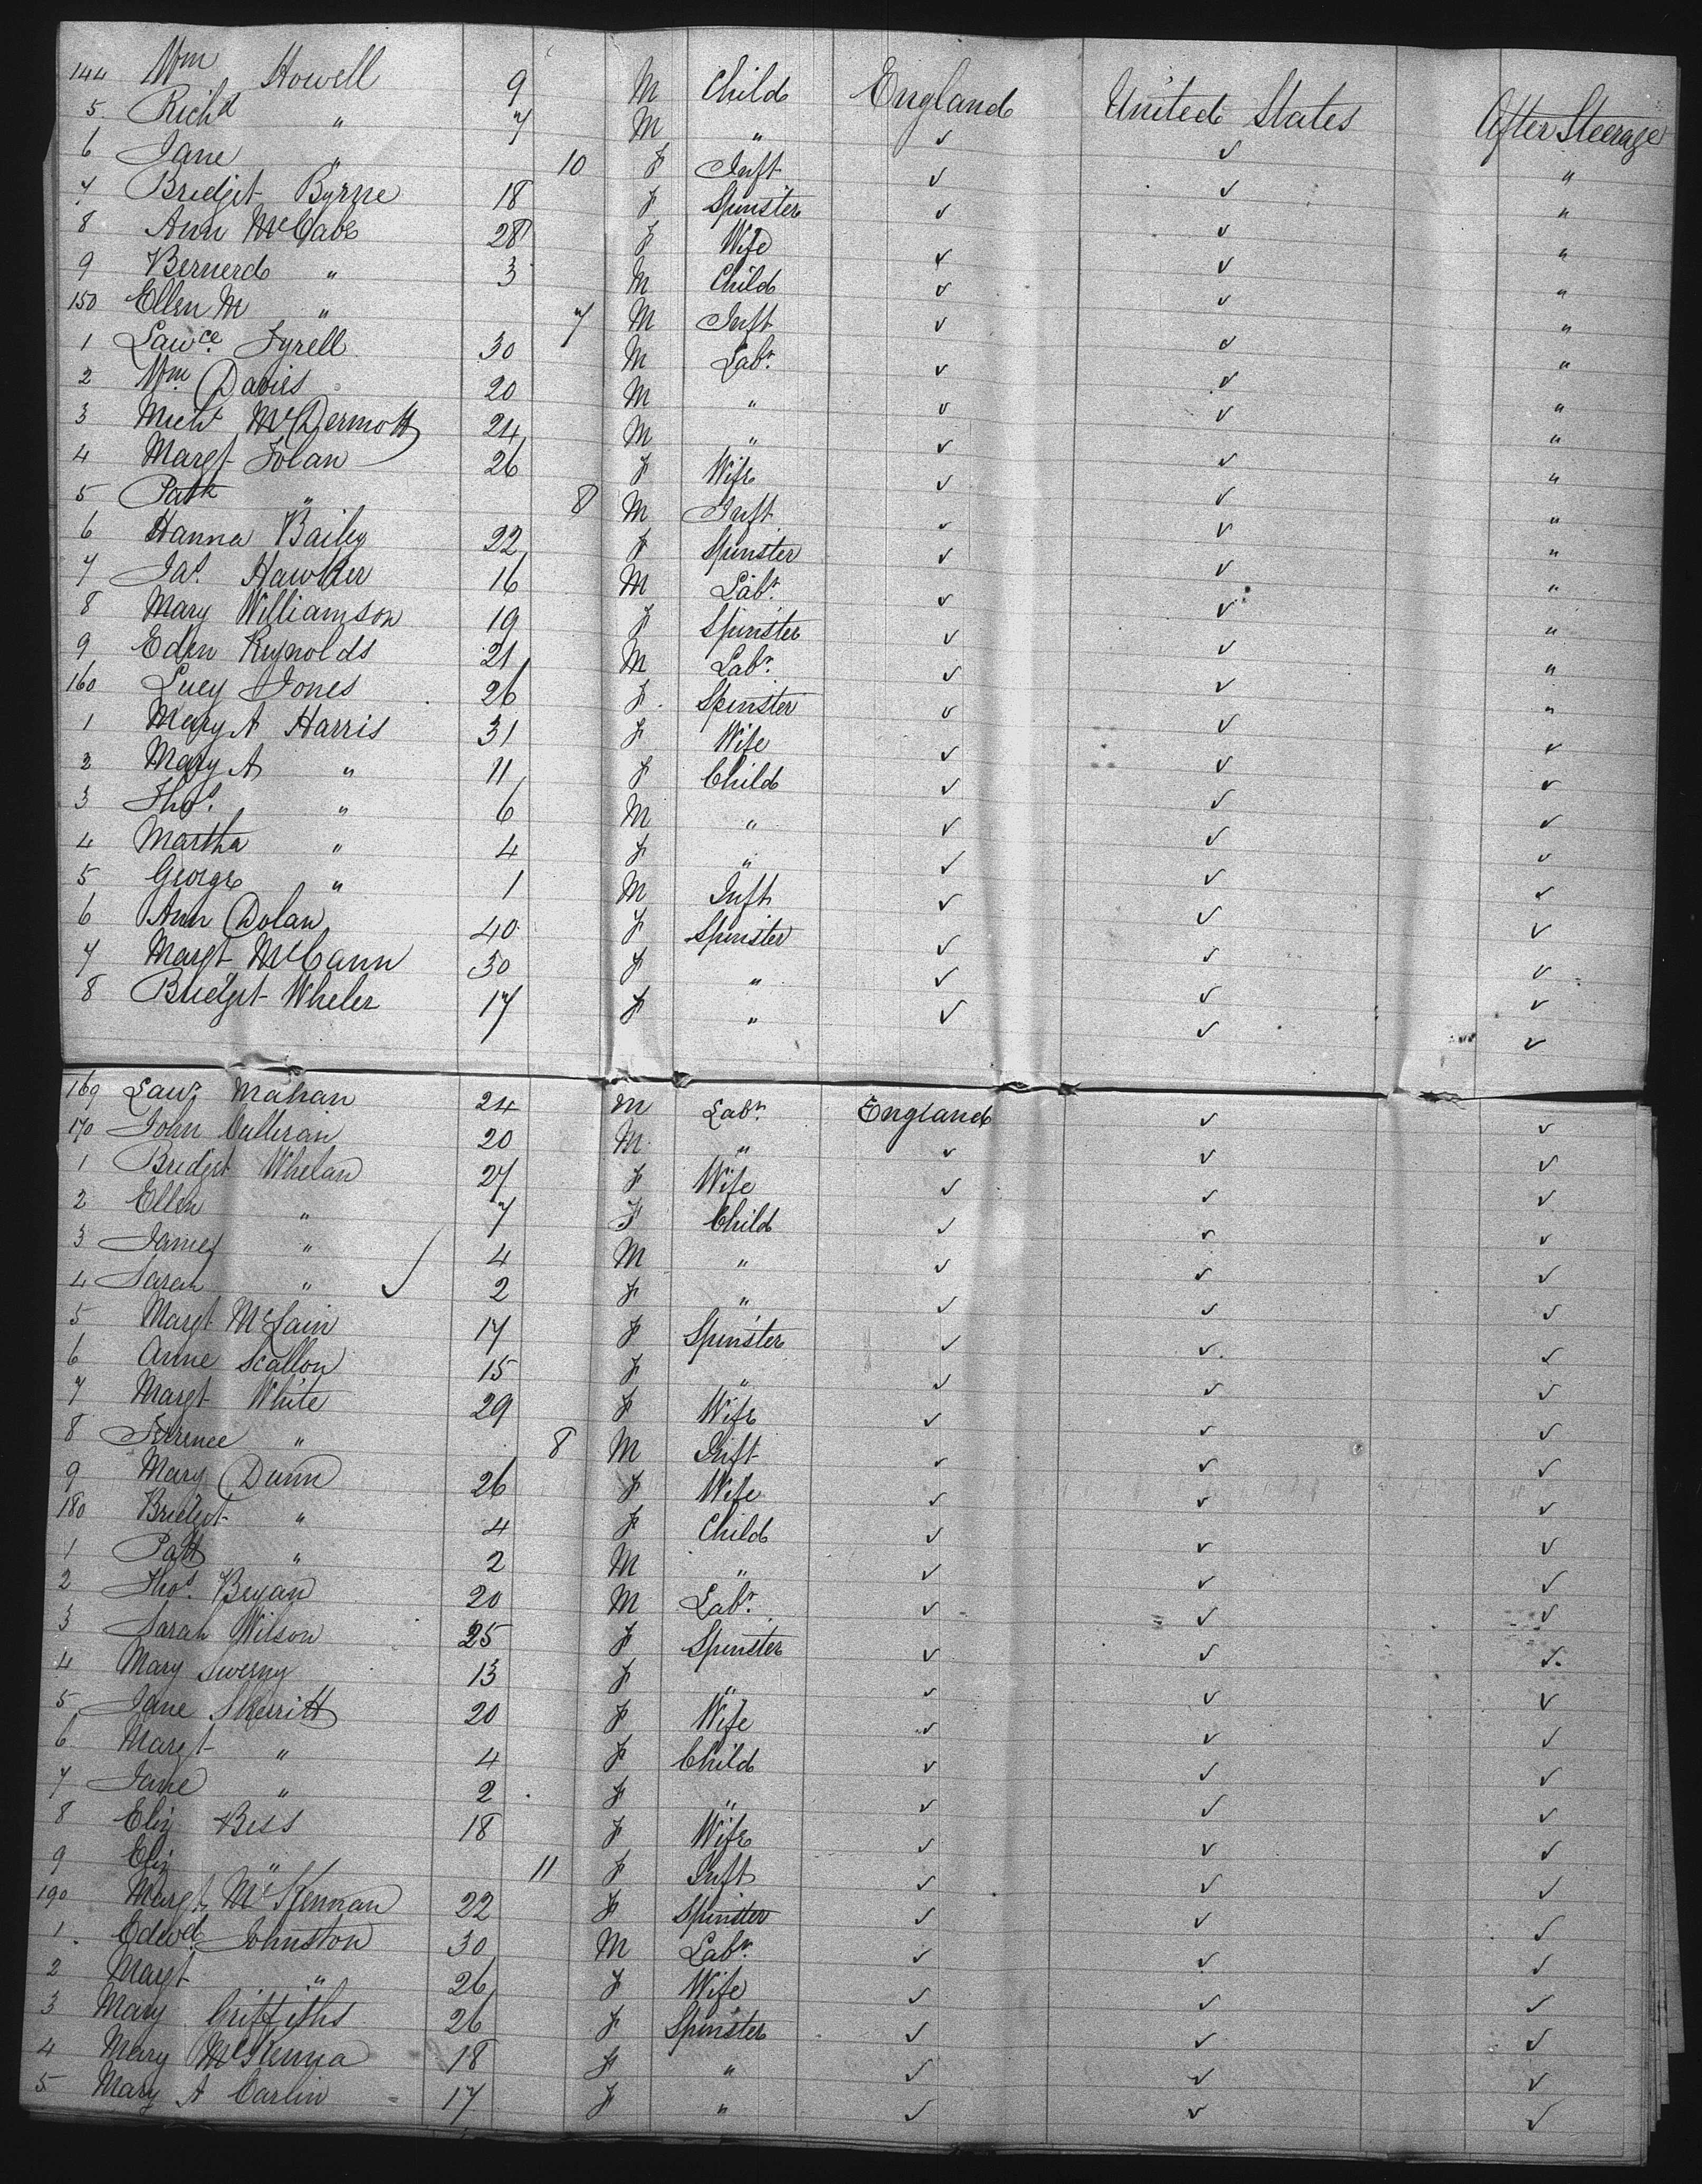 144 Wm Howell 9 M Child England United States After Steerage
5 Richd " 7 M " ✓ ✓ "
6 Jane " 10 F Inft ✓ ✓ "
7 Bridget Byrne 18 F Spinster ✓ ✓ "
8 Ann McCabe 28 F Wife ✓ ✓ "
9 Bernerd " 3 M Child ✓ ✓ "
150 Ellen M " 7 M Inft ✓ ✓ "
1 Lawce Tyrell 30 M Labr ✓ ✓ "
2 Wm Davies 20 M " ✓ ✓ "
3 Michl McDermott 24 M " ✓ ✓ "
4 Margt Folan 26 F Wife ✓ ✓ "
5 Patk " 8 M Inft ✓ ✓ "
6 Hanna Bailey 22 F Spinster ✓ ✓ "
7 Jas Hawker 16 M Labr ✓ ✓ "
8 Mary Williamson 19 F Spinster ✓ ✓ "
9 Eden Reynolds 21 M Labr ✓ ✓ "
160 Lucy Jones 26 F Spinster ✓ ✓ "
1 Mary A Harris 31 F Wife ✓ ✓ ✓
2 Mary A " 11 F Child ✓ ✓ ✓
3 Thos " 6 M " ✓ ✓ ✓
4 Martha " 4 F " ✓ ✓ ✓
5 George " 1 M Inft ✓ ✓ ✓
6 Ann Dolan 40 F Spinster ✓ ✓ ✓
7 Margt McCann 30 F " ✓ ✓ ✓
8 Bridget Wheler 17 F " ✓ ✓ ✓
169 Lawr Mahan 24 M Labr England ✓ ✓
170 John Culleran 20 M " ✓ ✓ ✓
1 Bridget Whelan 27 F Wife ✓ ✓ ✓
2 Ellen " 7 F Child ✓ ✓ ✓
3 James " 4 M " ✓ ✓ ✓
4 Sarah " ✓ 2 F " ✓ ✓ ✓
5 Margt McLain 17 F Spinster ✓ ✓ ✓
6 Anne Scallon 15 F " ✓ ✓ ✓
7 Margt White 29 F Wife ✓ ✓ ✓
8 Terence " 8 M Inft ✓ ✓ ✓
9 Mary Dunn 26 F Wife ✓ ✓ ✓
180 Bridget " 4 F Child ✓ ✓ ✓
1 Patk " 2 M " ✓ ✓ ✓
2 Thos Bryan 20 M Labr ✓ ✓ ✓
3 Sarah Wilson 25 F Spinster ✓ ✓ ✓
4 Mary Swerny 13 F " ✓ ✓ ✓
5 Jane Skerritt 20 F Wife ✓ ✓ ✓
6 Margt " 4 F Child ✓ ✓ ✓
7 Jane " 2 F " ✓ ✓ ✓
8 Eliz Bess 18 F Wife ✓ ✓ ✓
9 Eliz " 11 F Inft ✓ ✓ ✓
190 Margt McKennan 22 F Spinster ✓ ✓ ✓
1 Edwd Johnston 30 M Labr ✓ ✓ ✓
2 Margt " 26 F Wife ✓ ✓ ✓
3 Mary Griffiths 26 F Spinster ✓ ✓ ✓
4 Mary McKenna 18 F " ✓ ✓ ✓
5 Mary A Carlin 17 F " ✓ ✓ ✓